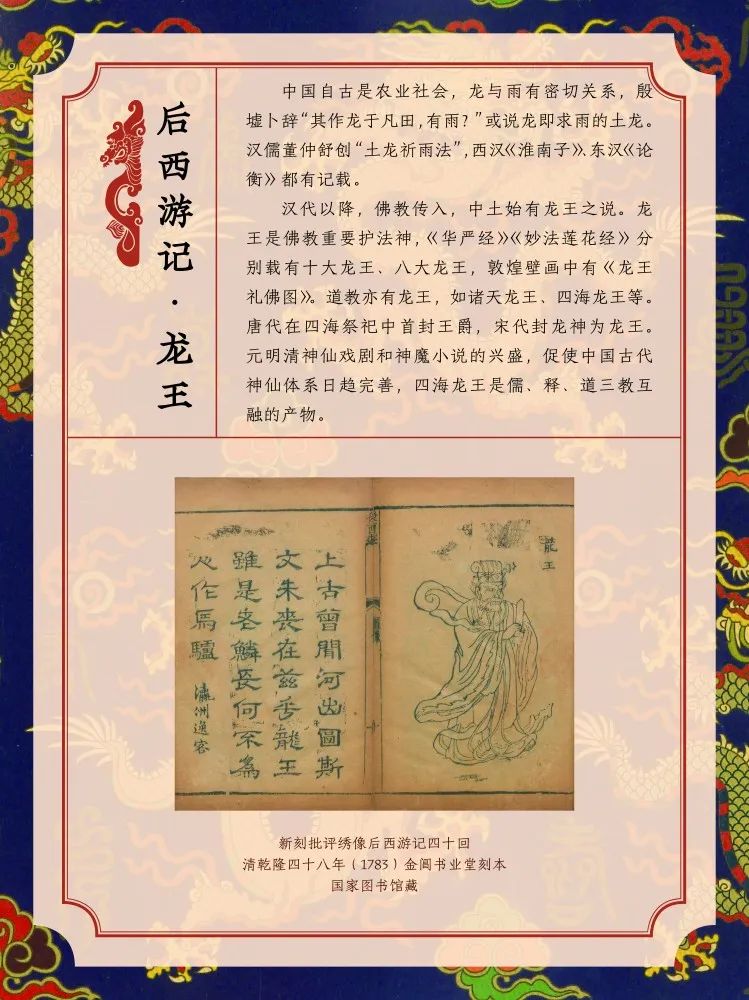 后西游记·龙王
中国自古是农业社会，龙与雨有密切关系，殷
墟卜辞“其作龙于凡田，有雨？”或说龙即求雨的土龙。
汉儒董仲舒创“土龙祈雨法”，西汉《淮南子》、东汉《论
衡》都有记载。
汉代以降，佛教传入，中土始有龙王之说。龙
王是佛教重要护法神，《华严经》《妙法莲花经》分
别载有十大龙王、八大龙王，敦煌壁画中有《龙王
礼佛图》。道教亦有龙王，如诸天龙王、四海龙王等。
唐代在四海祭祀中首封王爵，宋代封龙神为龙王。
元明清神仙戏剧和神魔小说的兴盛，促使中国古代
神仙体系日趋完善，四海龙王是儒、释、道三教互
融的产物。
龍王
上古曾聞河出圖斯
文未喪在茲乎龍王
雖是鱗長何不為
作馬驢
瀛洲逸客
新刻批评绣像后西游记四十回
清乾隆四十八年（1783）金阊书业堂刻本
国家图书馆藏